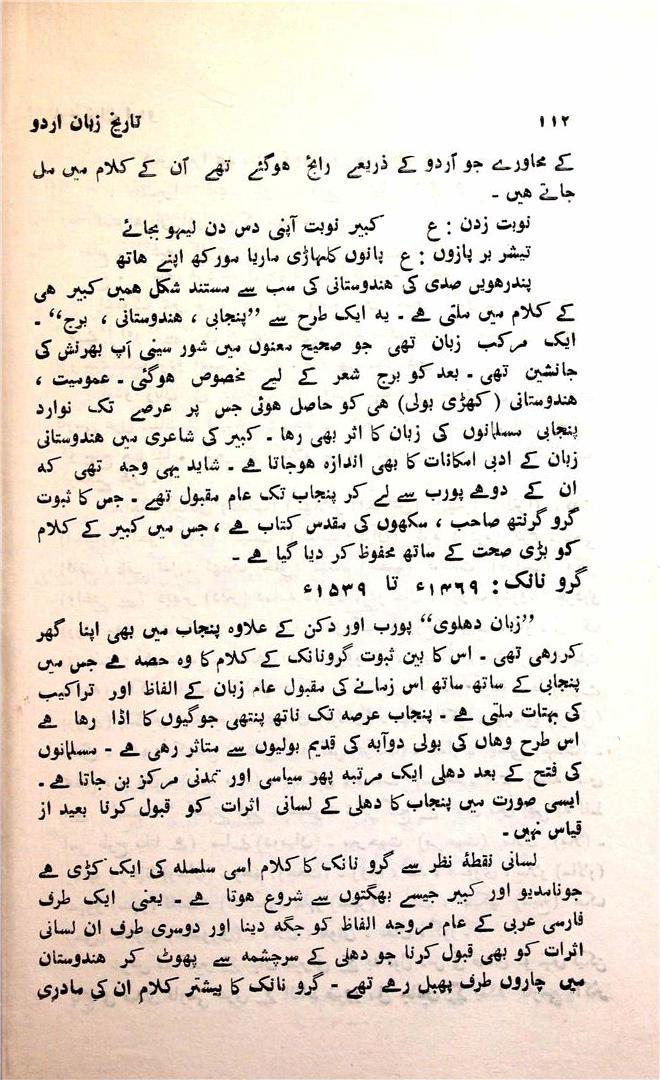 ۱۱۲ تاریخ زبان اردو
کے محاورے جو اُردو کے ذریعے رائج ہوگئے تھے اُن کے کلام میں مل
جاتے ہیں ۔
نوبت زدن : ع کبیر نوبت آپنی دس دن لیہو بجائے
تیشر بر پازوں : ع پانوں کلہاڑی ماریا مورکھ اپنے ہاتھ
پندرھویں صدی کی ہندوستانی کی سب سے مستند شکل ہمیں کبیر ہی
کے کلام میں ملتی ہے ۔ یہ ایک طرح سے ”پنجابی ، ہندوستانی ، برج“ ۔
ایک مرکب زبان تھی جو صحیح معنوں میں شور سینی اَپ بھرنش کی
جانشین تھی ۔ بعد کو برج شعر کے لیے مخصوص ہوگئی ۔ عمومیت ،
ہندوستانی (کھڑی بولی) ہی کو حاصل ہوئی جس پر عرصے تک نوارد
پنجابی مسلمانوں کی زبان کا اثر بھی رہا ۔ کبیر کی شاعری میں ہندوستانی
زبان کے ادبی امکانات کا بھی اندازہ ہوجاتا ہے ۔ شاید یہی وجہ تھی کہ
ان کے دوہے پورب سے لے کر پنجاب تک عام مقبول تھے ۔ جس کا ثبوت
گرو گرنتھ صاحب ، سکھوں کی مقدس کتاب ہے ، جس میں کبیر کے کلام
کو بڑی صحت کے ساتھ محفوظ کر دیا گیا ہے ۔
گرو نانک : ۱۴۶۹ء تا ۱۵۳۹ء
”زبان دہلوی“ پورب اور دکن کے علاوہ پنجاب میں بھی اپنا گھر
کر رہی تھی ۔ اس کا بین ثبوت گرونانک کے کلام کا وہ حصہ ہے جس میں
پنجابی کے ساتھ ساتھ اس زمانے کی مقبول عام زبان کے الفاظ اور تراکیب
کی بہتات ملتی ہے ۔ پنجاب عرصہ تک ناتھ پنتھی جوگیوں کا اڈا رہا ہے
اس طرح وہاں کی بولی دوآبہ کی قدیم بولیوں سے متاثر رہی ہے ۔ مسلمانوں
کی فتح کے بعد دہلی ایک مرتبہ پھر سیاسی اور تمدنی مرکز بن جاتا ہے ۔
ایسی صورت میں پنجاب کا دہلی کے لسانی اثرات کو قبول کرنا بعید از
قیاس نہیں ۔
لسانی نقطۂ نظر سے گرو نانک کا کلام اسی سلسلہ کی ایک کڑی ہے
جونامدیو اور کبیر جیسے بھگتوں سے شروع ہوتا ہے ۔ یعنی ایک طرف
فارسی عربی کے عام مروجہ الفاظ کو جگہ دینا اور دوسری طرف ان لسانی
اثرات کو بھی قبول کرنا جو دہلی کے سرچشمہ سے پھوٹ کر ہندوستان
میں چاروں طرف پھیل رہے تھے ۔ گرو نانک کا بیشتر کلام ان کی مادری